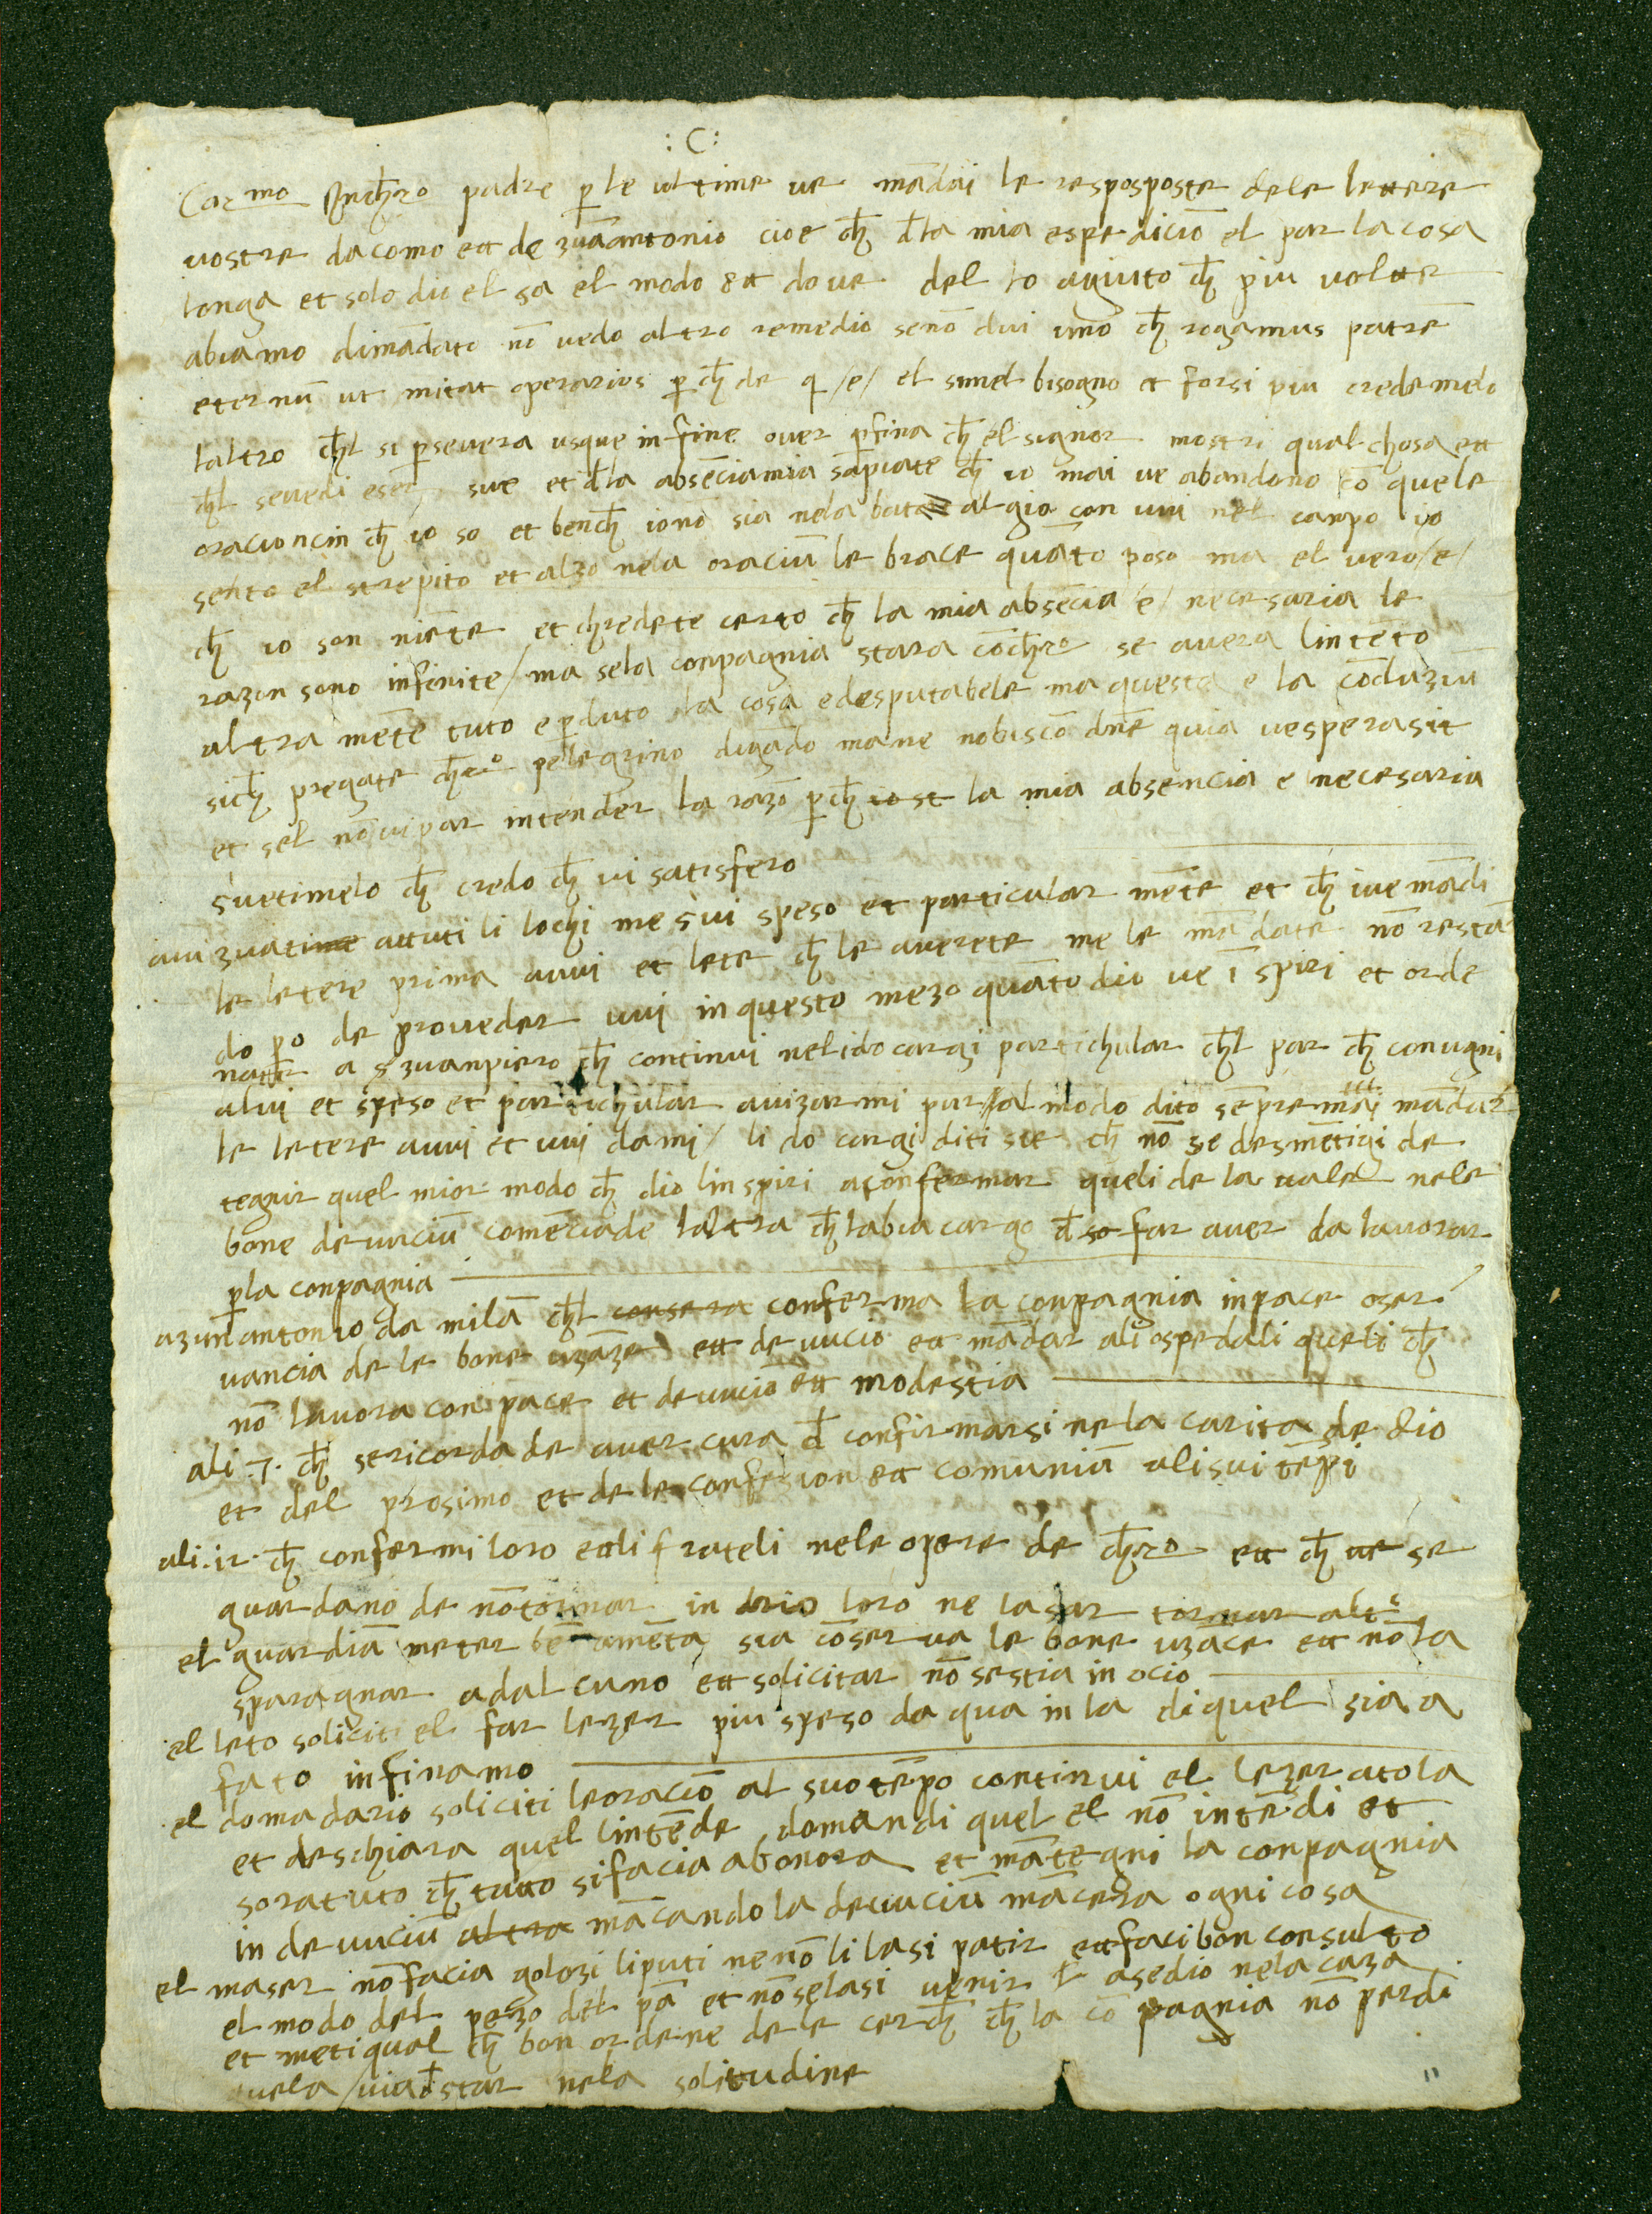 : C :
Car mo Inch̄ro padre p̄ le ultime ve mādai le resposposte dele lettere
vostre da como ett de zuāantonio cioe ch̄ d̄la mia espediciō el par la cosa
longa et solo dio el sa el modo ett dove del lo agiuto ch̄ piu volte
abiamo dimādato nō vedo altro remedio senō dui uno ch̄ rogamus patrē
eternū ut mitat operarios p̄ ch̄ de q /e/ el simel bisogno et forsi piu credemelo
laltro ch̄l si p̄severa usque in fine over p̄fina ch̄ el signor mostri qual chosa ett
ch̄l se vedi eser sue et d̄la absēcia mia sapiate ch̄ io mai ve abandono cō quele
oracioncin ch̄ io so et bench̄ io nō sia nela bata algia con vui nel canpo io
sento el strepito et alzo nela oraciū le brace quāto poso ma el vero /e/
ch̄ io son niēte et chredete certo ch̄ la mia absēcia /e/ necesaria le
razon sono infinite / ma se la conpagnia stara cō ch̄ro se avera lintēto
altra mēte tuto e p̄duto la cosa e desputabele ma questa e la cōduziū
sich̄ pregate ch̄ro pelegrino digādo mane nobiscō dnē quia vesperasit
et sel nō vi par intender la razō p̄ch̄ la mia absencia e necesaria
ch̄ credo ch̄ vi satisfero
avizuati attuti li lochi me sui speso et particular mēte et ch̄ ive mādi
le letere prima avui et lete ch̄ le averete me le mādate nō restā
do p̄o de proveder vui in questo mezo quāto dio ve ī spiri et orde
nar a s zuanpiero ch̄ continui neli do cargi partichular ch̄l par ch̄ convgni
alui et speso et partichular avizarmi pur al modo dito sēpre mādar
le letere avui et vui da mi / li do cargi diti sie ch̄ nō se desmētigi de
tegnir quel mior modo ch̄ dio linspiri a confermar queli de la vale nele
bone devuciū comēciade laltra ch̄ labia cargo d̄ so far aver da lavorar
p̄ la conpagnia
a zuan antonio da milā ch̄l consera conferma la conpagnia in pace oser
vancia de le bone uzāze ett devucio ett mādar ali ospedali queli ch̄
nō lavora con pace et devuciō ett modestia
ali .7. ch̄ se ricorda de aver cura d̄ confirmarsi ne la carita de dio
et del prosimo et de le confesion ett comuniū ali sui tēpi
ali .12. ch̄ confermi loro ett li frateli nele opere de ch̄ro ett ch̄ ve se
guardano de nō tornar in drio loro ne lasar tornar altr
el guardiā meter bē amēta sia cōserva le bone uzāce ett nō la
sparagnar ad alcuno ett solicitar nō se stia in ocio
el leto soliciti el far lezer piu speso da qua in la di quel sia a
fato infinamo
el domadario soliciti le oraciō al suo tēpo continui el lezer atola
et deschiara quel lintēde, domandi quel el nō intēdi et
soratuto ch̄ tutto si facia abonora et mātegni la conpagnia
in devuciū altra mācando la devuciū mācera ogni cosa
el maser nō facia golozi li puti ne nō li lasi patir ett faci bon consulto
el modo del pezo del pā et nō se lasi venir l asedio nela caza
et meti qual ch̄ bon ordene dele cerch̄ ch̄ la cō pagnia nō perdi
/ via d̄ star nela solitudine